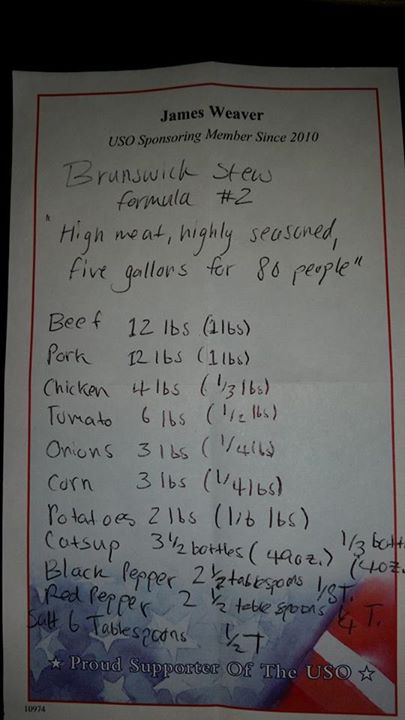 James Weaver
USO Sponsoring Member Since 2010
Brunswick Stew
formula #2
"High meat, highly seasoned,
five gallons for 80 people"
Beef 12 lbs (1 lbs)
Pork 12 lbs (1 lbs)
Chicken 4 lbs (1/3 lbs)
Tumato 6 lbs (1/2 lbs)
Onions 3 lbs (1/4 lbs)
Corn 3 lbs (1/4 lbs)
Potatoes 2 lbs (1/6 lbs)
Catsup 3 1/2 bottles (49oz.) 1/3 bott
(4oz.
Black Pepper 2 1/2 tablespoons 1/8 T.
Red Pepper 2 1/2 table spoons 1/4 T.
Salt 6 Tablespoons 1/2 T
☆ Proud Supporter Of The USO ☆
10974